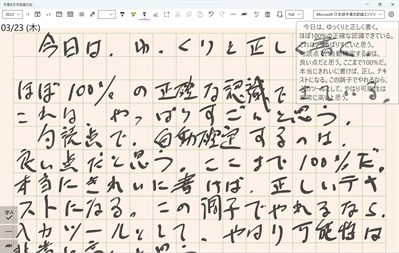 2023
Full
Microsoft 日本語手書き認識エンジン
03/23 (木)
今日は、ゆっくりと正しく書く。
ほぼ100%の正確な認識できている。
これは、やっぱりすごいと思う。
句読点で、自動確定するのは、
良い点だと思う。ここまで100%だ。
本当にきれいに書けば、正しいテキ
ストになる。この調子でやれるなら、
入力ツールとして、やはり可能性は
非常に高いと思う。
今日は、ゆっくりと正しく書く。
ほぼ100%の正確な認識できている。
良い点だと思う。ここまで100%だ。
本当にきれいに書けば、正し、テキ
ストになる。この調子でやれるなら、